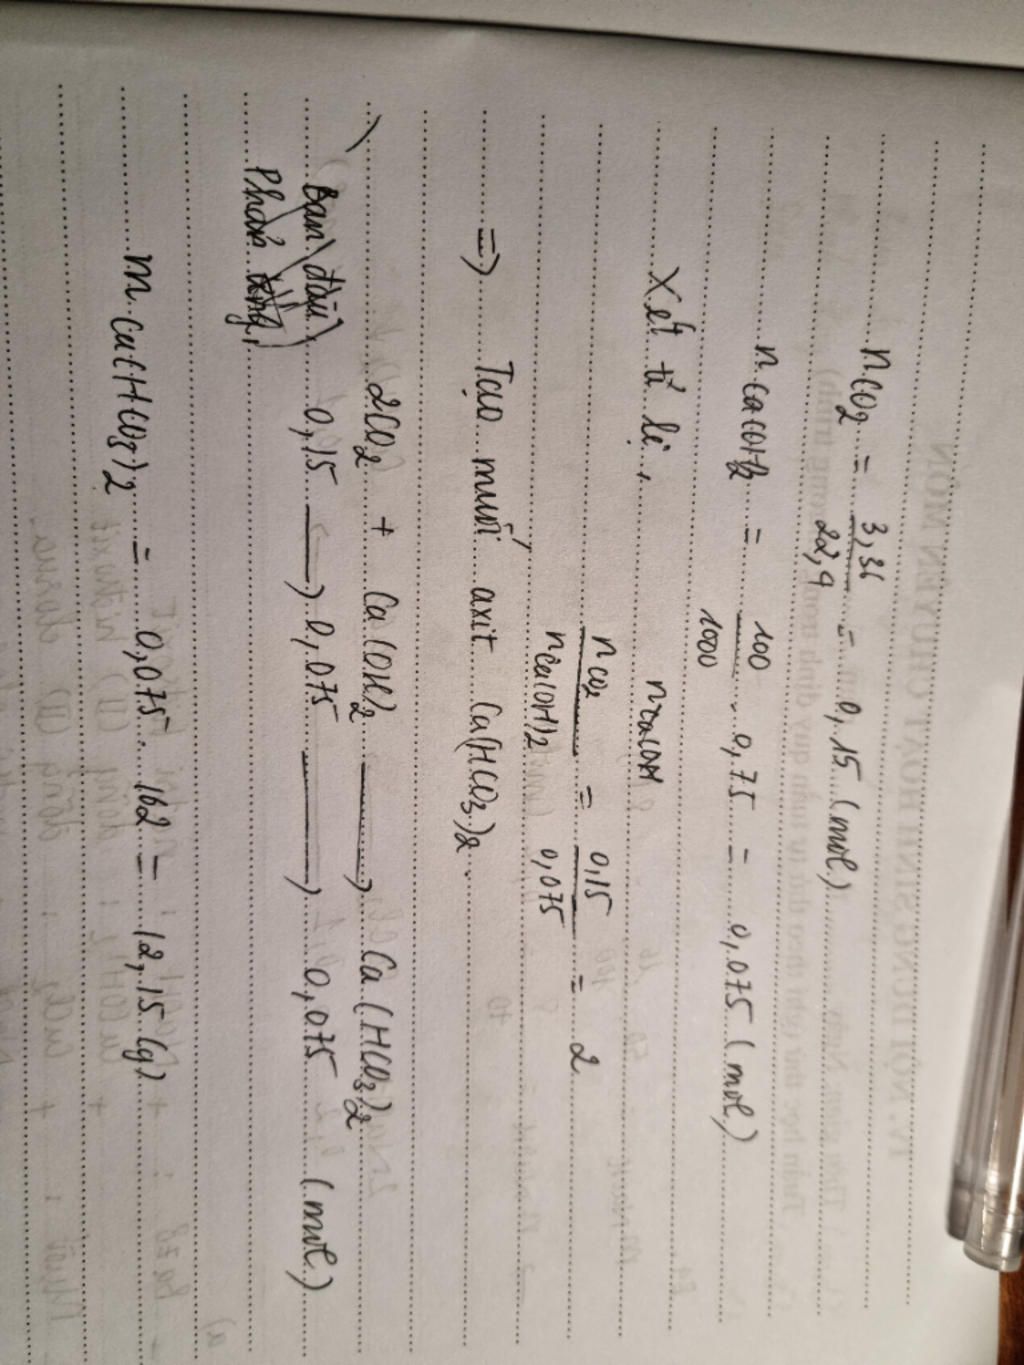 nCO2 = 3,36 / 22,4 = 0,15 (mol)
nCa(OH)2 = 100 / 1000 . 0,75 = 0,075 (mol)
Xét tỉ lệ, nCaOH
nCO2 / nCa(OH)2 = 0,15 / 0,075 = 2
=> Tạo muối axit Ca(HCO3)2
2CO2 + Ca(OH)2 → Ca(HCO3)2
Ban đầu 0,15 → 0,075 → 0,075 (mol)
Phản ứng
m Ca(HCO3)2 = 0,075 . 162 = 12,15 (g)